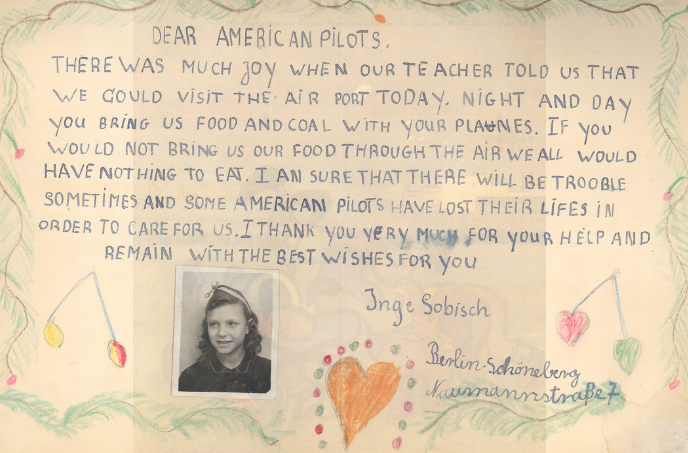 DEAR AMERICAN PILOTS.
THERE WAS MUCH JOY WHEN OUR TEACHER TOLD US THAT
WE COULD VISIT THE AIR PORT TODAY. NIGHT AND DAY
YOU BRING US FOOD AND COAL WITH YOUR PLANES. IF YOU
WOULD NOT BRING US OUR FOOD THROUGH THE AIR WE ALL WOULD
HAVE NOTHING TO EAT. I AN SURE THAT THERE WILL BE TROOBLE
SOMETIMES AND SOME AMERICAN PILOTS HAVE LOST THEIR LIFES IN
ORDER TO CARE FOR US. I THANK YOU VERY MUCH FOR YOUR HELP AND
REMAIN WITH THE BEST WISHES FOR YOU
Inge Sobisch
Berlin-Schöneberg
Naumannstraße 7